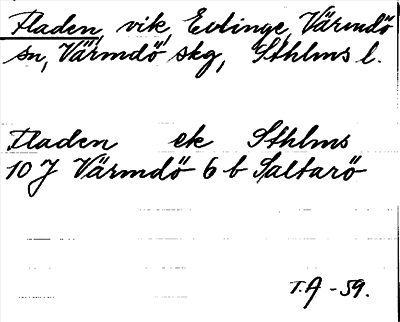 Fladen, vik, Evlinge, Värmdö
sn, Värmdö skg, Sthlms l.
Fladen ek Sthlms
10 J Värmdö 6 b Saltarö
T.A -59.